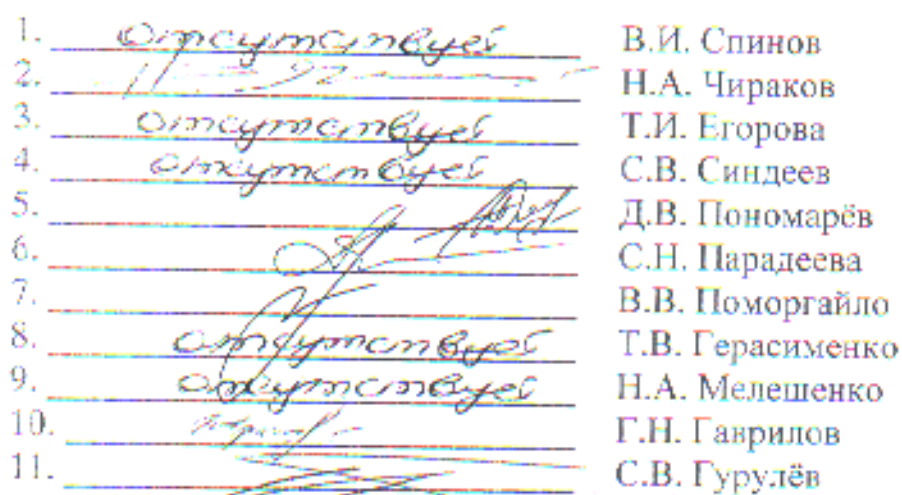 1. отсутствует В.И. Спинов
2. Н.А. Чираков
3. отсутствует Т.И. Егорова
4. отсутствует С.В. Синдеев
5. Д.В. Пономарёв
6. С.Н. Парадеева
7. В.В. Поморгайло
8. отсутствует Т.В. Герасименко
9. отсутствует Н.А. Мелешенко
10. Г.Н. Гаврилов
11. С.В. Гурулёв